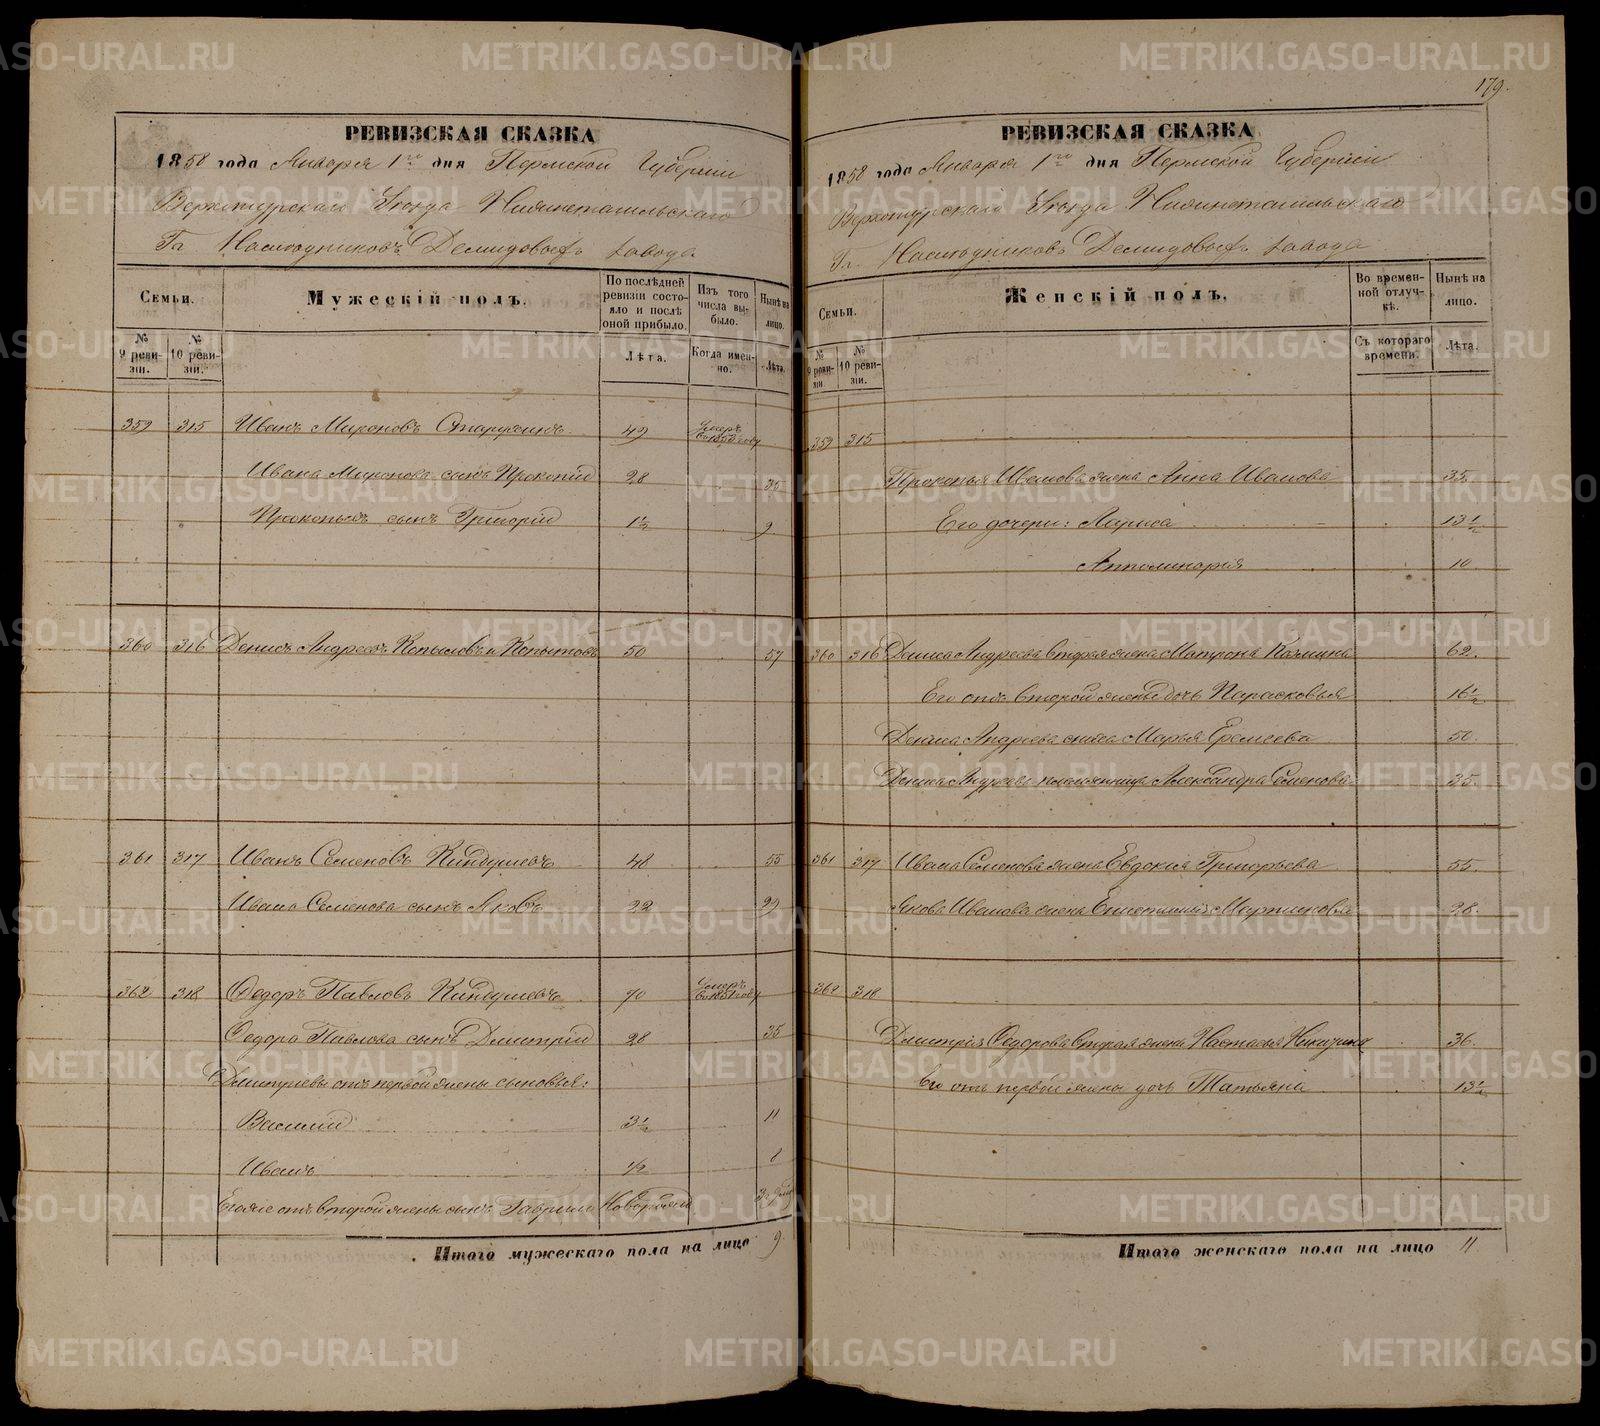 179.
РЕВИЗСКАЯ СКАЗКА
1858 года Января 1го дня Пермской Губернии
Верхотурскаго Уезда Нижнетагильскаго
Гг. Наследниковъ Демидовыхъ завода
Семьи.
Мужескій полъ.
По послѣдней ревизіи состояло и послѣ оной прибыло.
Изъ того числа выбыло.
Нынѣ на лицо.
№ 9 ревизіи.
№ 10 ревизіи.
Лѣта.
Когда именно.
Лѣта.
359 315 Иванъ Мироновъ 49 Умеръ
Ивана Миронова сынъ Прокопій 28 35
Прокопья сынъ Григорій 1½ 9
360 316 Денисъ Андреевъ Копыловъ и Копытовъ 50 57
361 317 Иванъ Семеновъ 48 55
Ивана Семенова сынъ Яковъ 22 29
362 318 Федоръ Павловъ 70 Умеръ
Федора Павлова сынъ Дмитрій 28 35
Дмитріевы отъ первой жены сыновья:
Василій 3½ 11
Иванъ ½ 8
Его же отъ второй жены сынъ Гаврило
Итого мужескаго пола на лицо 9
РЕВИЗСКАЯ СКАЗКА
1858 года Января 1го дня Пермской Губерніи
Верхотурскаго Уезда Нижнетагильскаго
Гг. Наследниковъ Демидовыхъ завода
Семьи.
Женскій полъ.
Во временной отлучкѣ.
Нынѣ на лицо.
№ 9 ревизіи
№ 10 ревизіи.
Съ котораго времени.
Лѣта.
359 315
Прокопья Иванова жена Анна Иванова 35.
Его дочери: Лариса 13½
Апполинарія 10
360 316 Дениса Андреева вторая жена Матрона 62.
Его отъ второй жены дочь Парасковья 16½
Дениса Андреева сноха Марья Еремеева 50.
Дениса Андреева племянница Александра Семенова 35.
361 317 Ивана Семенова жена Евдокия Григорьева 55.
Якова Иванова жена Мартынова 28.
362 318
Дмитрія Федорова вторая жена Настасья 36.
Его отъ первой жены дочь Татьяна 13½
Итого женскаго пола на лицо 11
METRIKI.GASO-URAL.RU